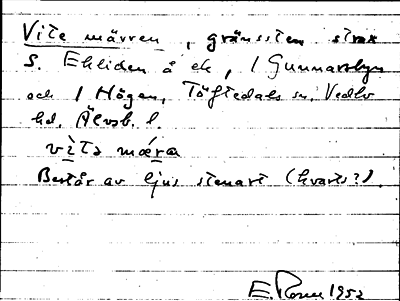 Vite märren, gränssten strax
S. Ekliden å ek, 1 Gunnarsbyn
och 1 Högen, Töftedals sn, Vedbo
hd, Älvsb. l.
vìtə mæ̀ra
Består av ljus stenart (kvarts?).
E. 1952